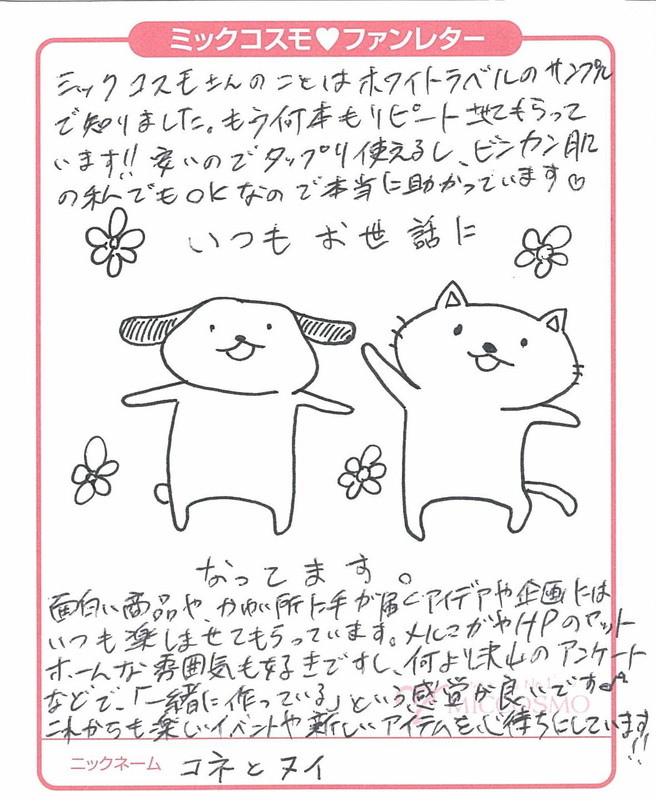 ミックコスモ♥ファンレター
ミックコスモさんのことはホワイトラベルのサンプル
で知りました。もう何本もリピートさせてもらって
います!! 安いのでタップリ使えるし、ビンカン肌
の私でもOKなので本当に助かっています♡
いつもお世話に
なってます。
面白い商品や、かゆい所に手が届くアイデアや企画には
いつも楽しませてもらっています。メルマガやHPのアット
ホームな雰囲気も好きですし、何より沢山のアンケート
などで、「一緒に作っている」という感覚が良いです♪
MICCOSMO
これからも楽しいイベントや新しいアイテムを心待ちにしています!!
ニックネーム コネとヌイ